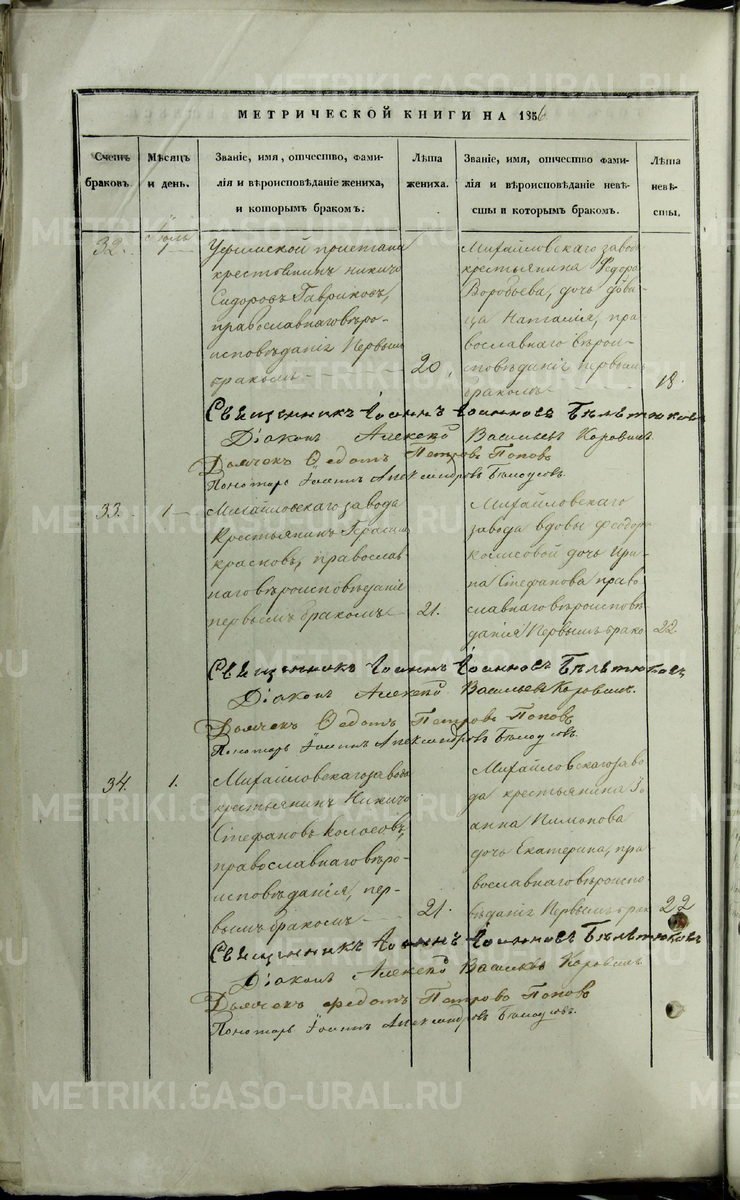 МЕТРИЧЕСКОЙ КНИГИ НА 1856
Счетъ браковъ.
Мѣсяцъ и день.
Званіе, имя, отчество, фами-
лія и вѣроисповѣданіе жениха,
и которымъ бракомъ.
Лѣта
жениха.
Званіе, имя, отчество фами-
лія и вѣроисповѣданіе невѣ-
сты и которымъ бракомъ.
Лѣта
невѣ-
сты.
32.
Іюль
Уфимской пристани
крестьянинъ Никита
Сидоровъ Гавриковъ,
православнаго вѣро-
исповѣданія Первымъ
бракомъ
20.
Михайловскаго завода
крестьянина Федора
Воробьева, дочь дѣви-
ца Наталія, пра-
вославнаго вѣрои-
сповѣданія первымъ
бракомъ
18.
Священникъ Іоаннъ Іоанновъ Бѣлѣтюковъ
Діаконъ Алексѣй Васильевъ Коровинъ
Дьячекъ Федотъ Петровъ Поповъ
Пономарь Іоаннъ Александровъ Бѣлоусовъ.
33.
1
Михайловскаго завода
Крестьянинъ Герасимъ
красновъ, православ-
наго вѣроисповѣданія
первымъ бракомъ
21.
Михайловскаго
завода вдовы Феодор
дочь Ири-
на Стефанова право
славнаго вѣроисповѣ
данія Первымъ брако
22
Священникъ Іоаннъ Іоанновъ Бѣлѣтюковъ
Діаконъ Алексѣй Васильевъ Коровинъ.
Дьячекъ Федотъ Петровъ Поповъ
Пономарь Іоаннъ Александровъ Бѣлоусовъ.
34.
1.
Михайловскаго завода
крестьянинъ Никита
Стефановъ Колосовъ,
православнаго вѣро-
исповѣданія, пер-
вымъ бракомъ
21.
Михайловскаго заво
да крестьянина Іо
анна Пимонова
дочь Екатерина, пра
вославнаго вѣроиспо
вѣданія Первымъ брак
22
Священникъ Іоаннъ Іоанновъ Бѣлѣтюковъ
Діаконъ Алексѣй Васильевъ Коровинъ
Дьячекъ Федотъ Петровъ Поповъ
Пономарь Іоаннъ Александровъ Бѣлоусовъ.
METRIKI.GASO-URAL.RU